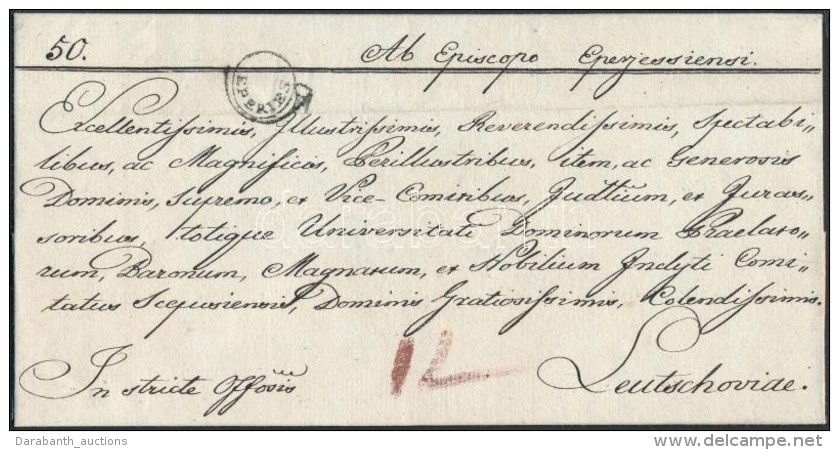 50.
Ab Episcopo Eperjessiensi.
EPERIES
Excellentissimis, Illustrissimis, Reverendissimis, Spectabi„
libus, ac Magnificis, Perillustribus, item, ac Generosis
Dominis, Supremo, et Vice-Comitibus, Judtiūm, et Juras„
soribus, totique Universitati Dominorum Praelato„
rum, Baronum, Magnatum, et Nobilium Inclyti Comi„
tatus Scepusiensis, Dominis Gratiosissimis, Colendissimis.
In stricte Offosis
12
Leutschoviae.
darabanth
Darabanth_auctions
delcampe.net